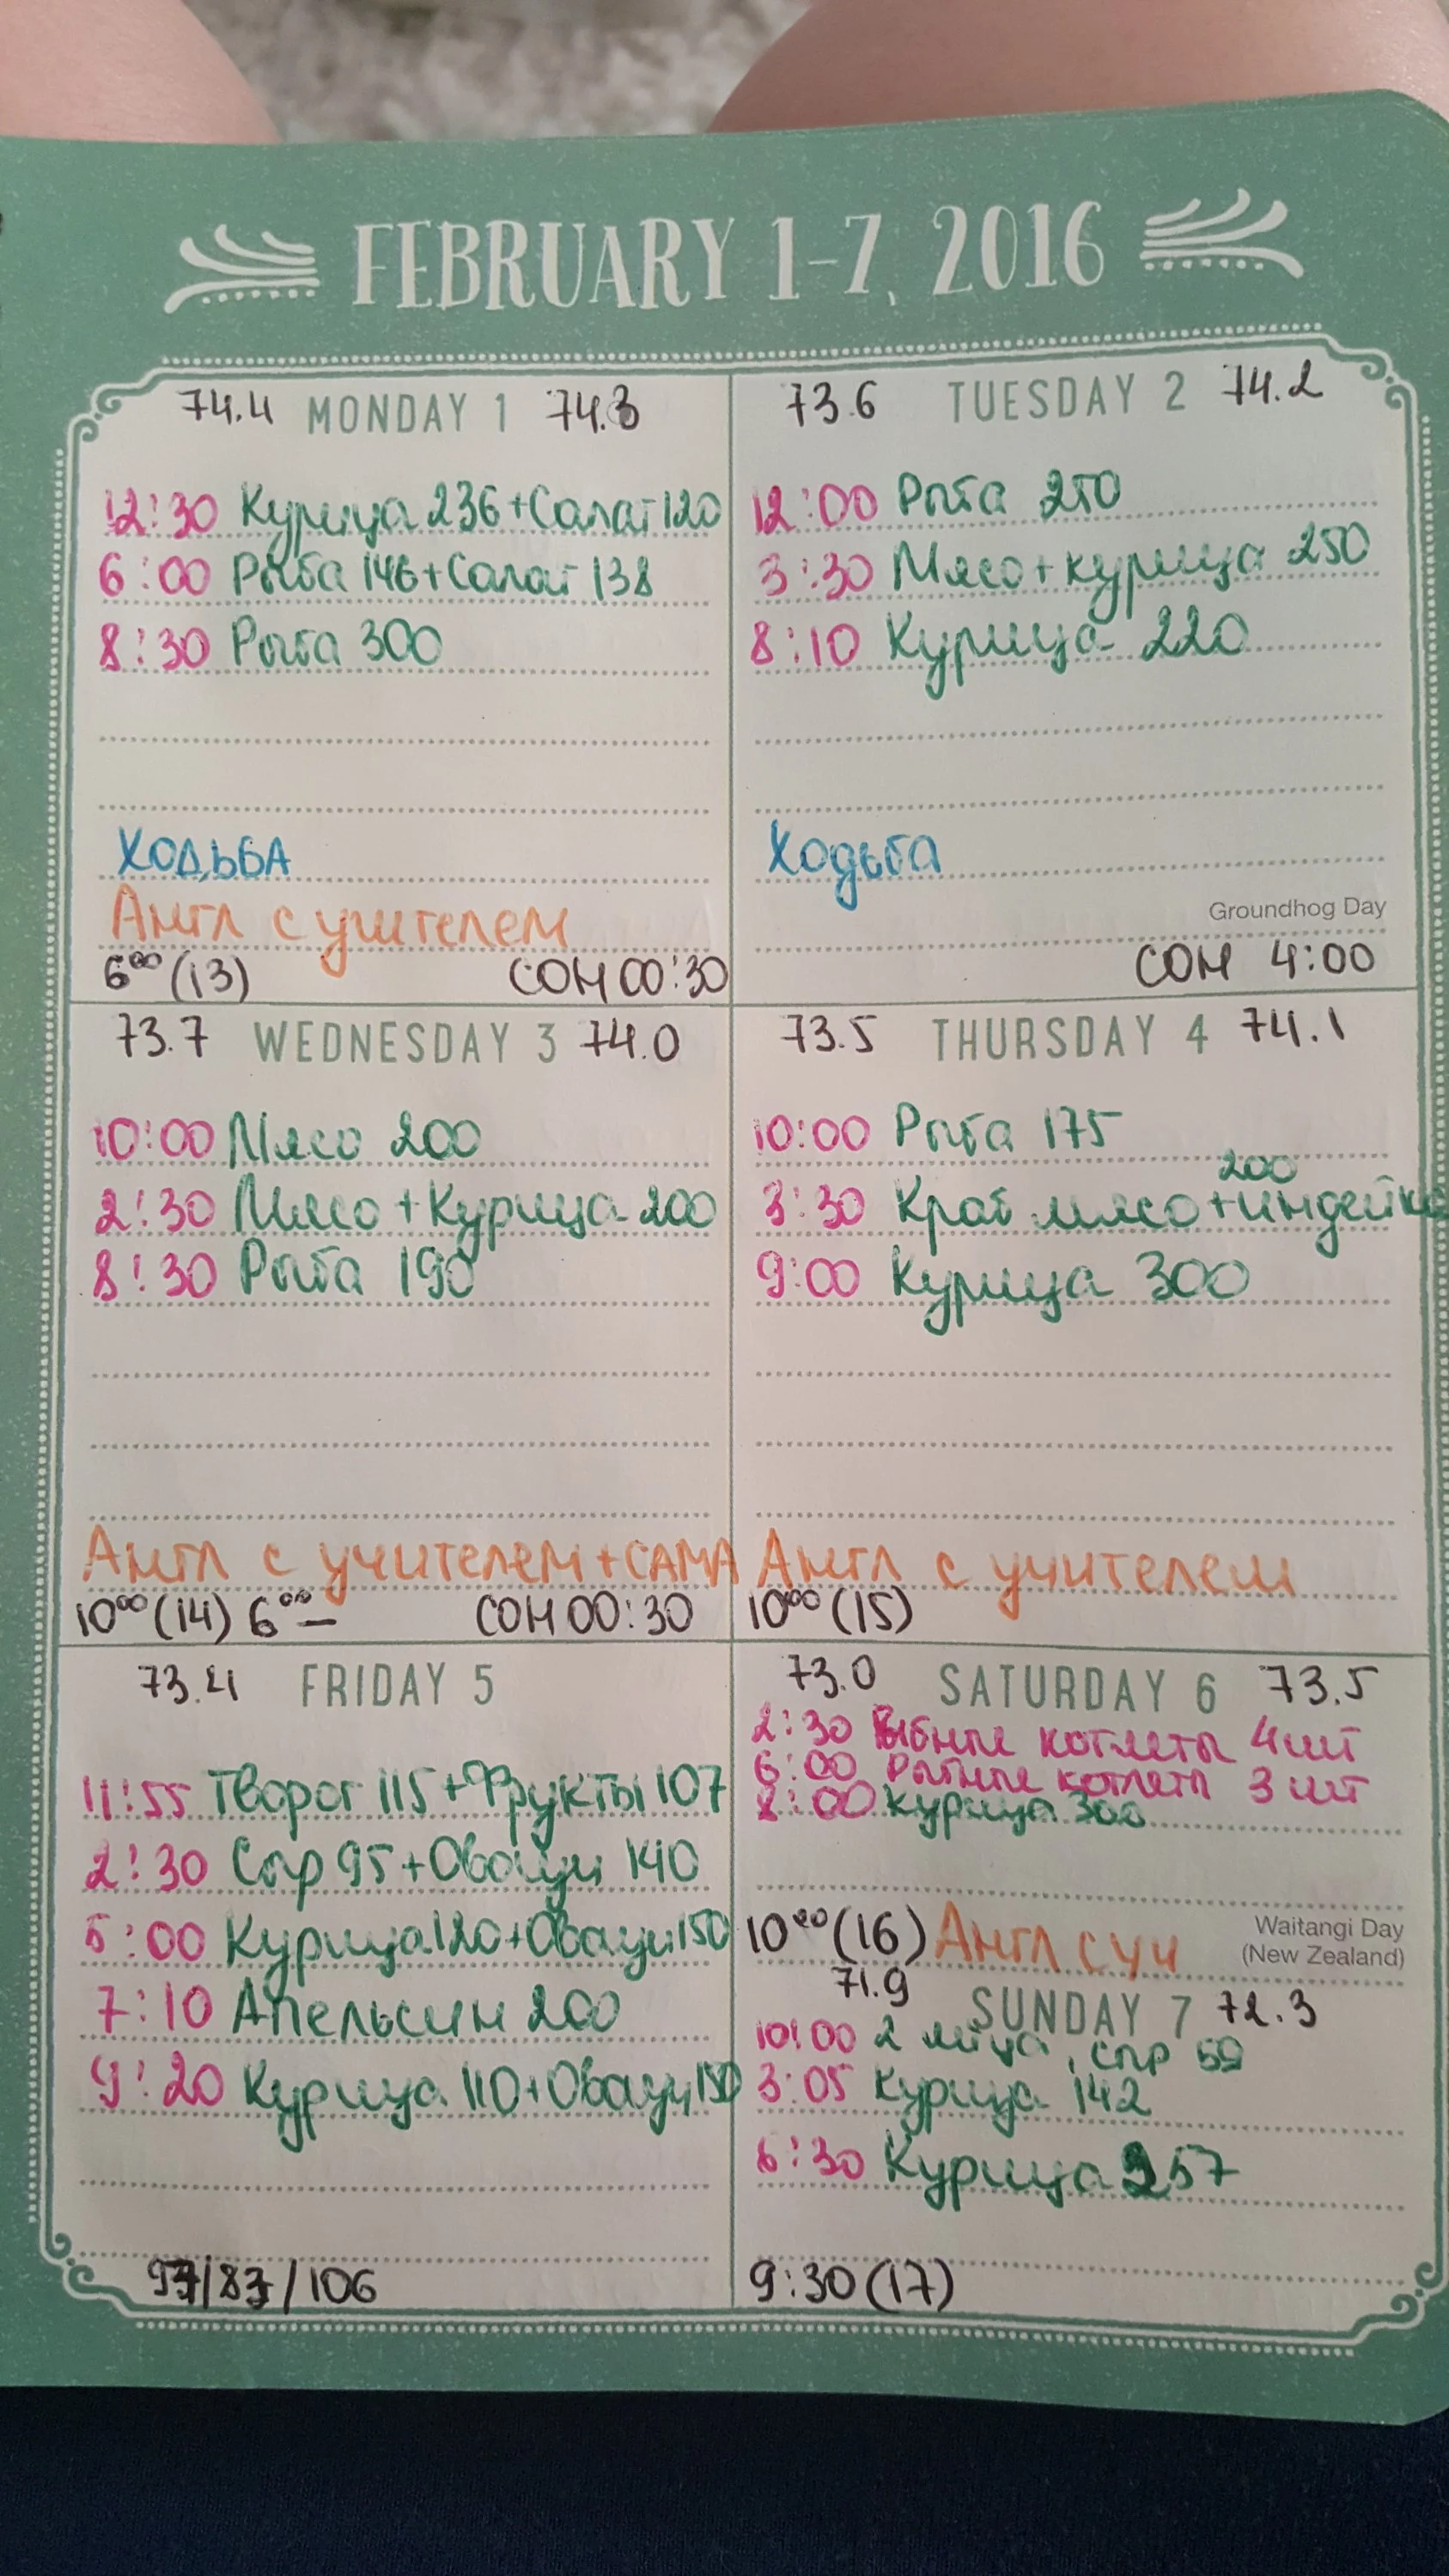 FEBRUARY 1-7, 2016
74.4 MONDAY 1 74.3
12:30 Курица 236+Салат 120
6:00 Рыба 146+Салат 138
8:30 Рыба 300
ХОДЬБА
Англ с учителем
6⁰⁰ (13) СОН 00:30
73.6 TUESDAY 2 74.2
12:00 Рыба 250
3:30 Мясо+курица 250
8:10 Курица 220
Ходьба
Groundhog Day
СОН 4:00
73.7 WEDNESDAY 3 74.0
10:00 Мясо 200
2:30 Мясо+Курица 200
8:30 Рыба 190
Англ с учителем+САМА
10⁰⁰ (14) 6⁰⁰– СОН 00:30
73.5 THURSDAY 4 74.1
10:00 Рыба 175
200
3:30 Краб мясо+индейка
9:00 Курица 300
Англ с учителем
10⁰⁰ (15)
73.4 FRIDAY 5
11:55 Творог 115+Фрукты 107
2:30 Сыр 95+Овощи 140
5:00 Курица 120+Овощи 150
7:10 Апельсин 200
9:20 Курица 110+Овощи 150
/ 106
73.0 SATURDAY 6 73.5
2:30 Рыбные котлеты 4 шт
6:00 Рыбные котлеты 3 шт
8:00 Курица 300
10⁰⁰ (16) Англ с уч
Waitangi Day
(New Zealand)
71.9 SUNDAY 7 72.3
10:00 2 яйца, сыр 59
3:05 Курица 142
6:30 Курица 257
9:30 (17)